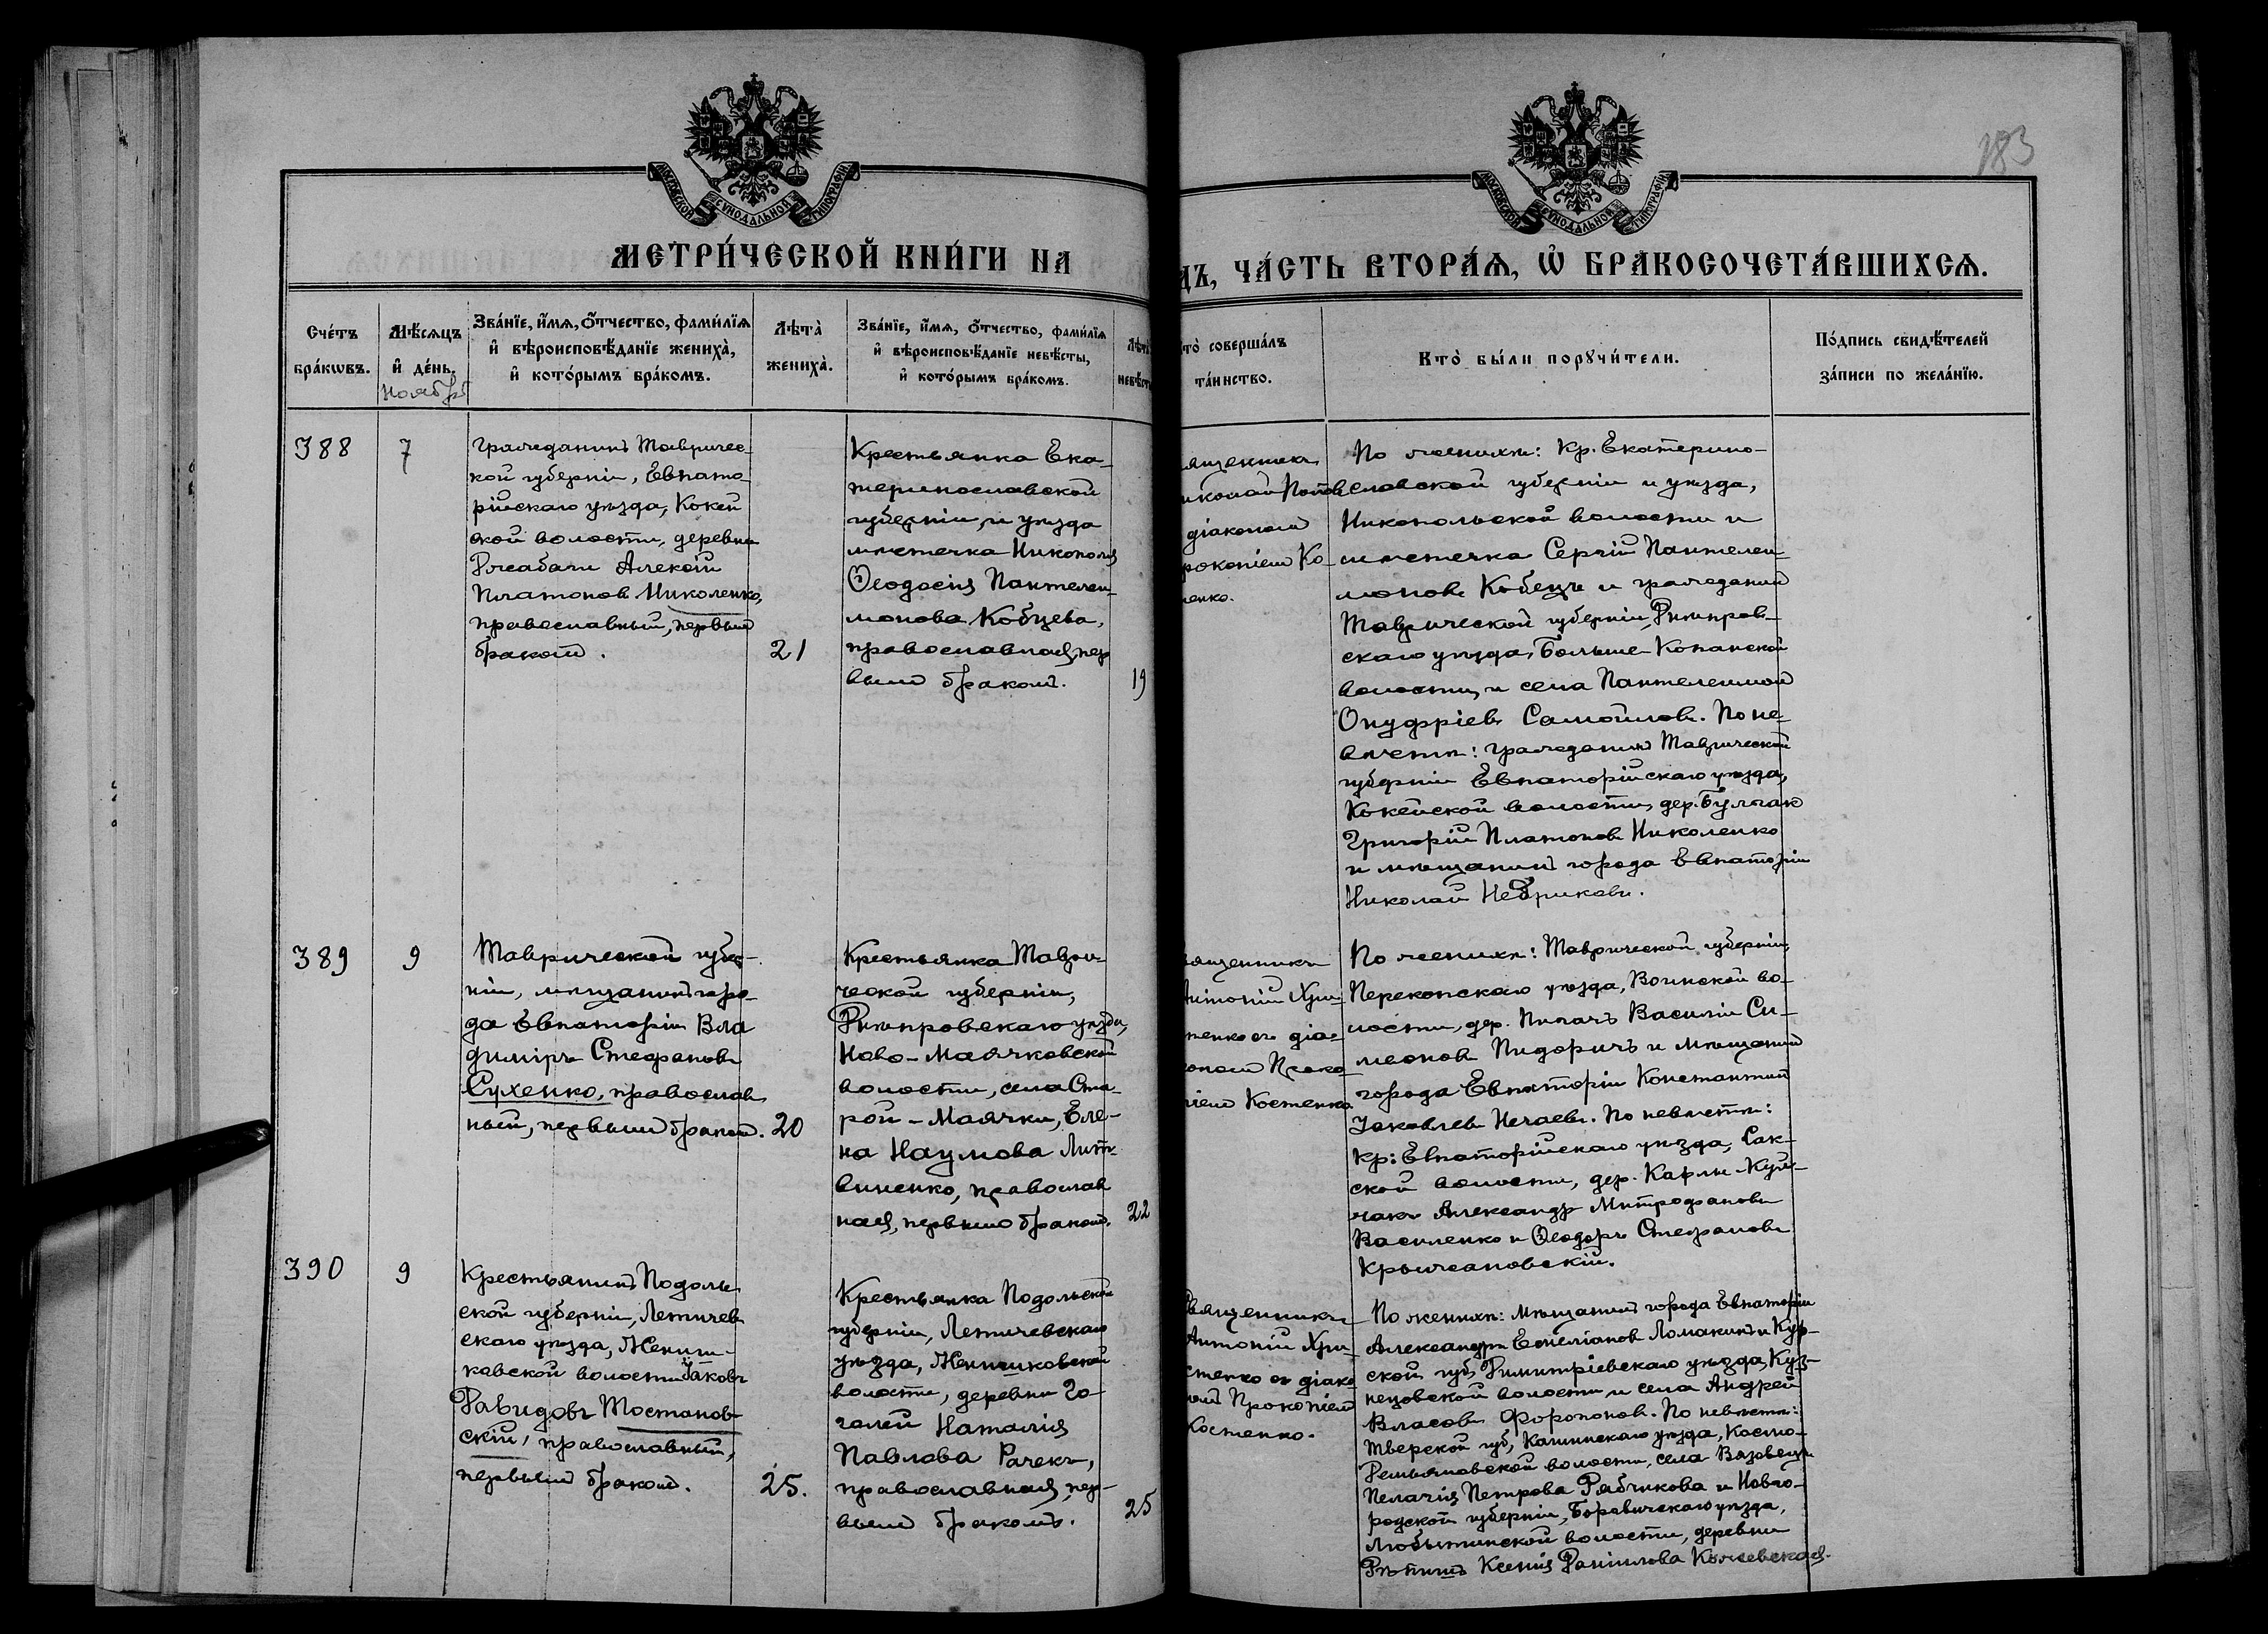 183
МОСКОВСКОЙ СѴНОДАЛЬНОЙ ТИПОГРАФІИ
МОСКОВСКОЙ СѴНОДАЛЬНОЙ ТИПОГРАФІИ
МЕТРИ́ЧЕСКОЙ КНИ́ГИ НА
ДЪ, ЧА́СТЬ ВТОРА́Ѧ, Ѽ БРАКОСОЧЕТА́ВШИХСѦ.
Сче́тъ
бра́кѡвъ.
Мѣ́сѧцъ
и҆ де́нь.
Ноябрь
Зва́нїе, и҆́мѧ, о҆́тчество, фами́лїѧ
и҆ вѣроисповѣ́данїе жениха̀,
и҆ кото́рымъ бра́комъ.
Лѣта̀
жениха̀.
Зва́нїе, и҆́мѧ, о҆́тчество, фами́лїѧ
и҆ вѣроисповѣ́данїе невѣ́сты,
и҆ кото́рымъ бра́комъ.
Лѣт
невѣст
то̀ соверша́лъ
та́инство.
Кто̀ бы́ли порꙋчи́тели.
По́дпись свидѣ́телей
за́писи по жела́нїю.
388
7
Гражданинъ Тавричес-
кой губерніи, Евпато-
рійскаго уѣзда, Кокей
ской волости, деревни
Джабачи Алексій
Платоновъ Николенко,
православный, первымъ
бракомъ.
21
Крестьянка Ека-
теринославской
губерніи и уѣзда
мѣстечка Никополя
Ѳеодосія Пантелеи-
монова Кобцева,
православная, пер
вымъ бракомъ.
19
ященникъ
иколай Поповъ
діакономъ
рокопіемъ Ко-
енко.
По женихѣ: Кр. Екатерино-
славской губерніи и уѣзда,
Никопольской волости и
мѣстечка Сергій Пантелеи-
моновъ Кобецъ и гражданинъ
Таврической губерніи, Днѣпров-
скаго уѣзда, Больше-Копанской
волости и села Пантелеимонъ
Онуфріевъ Самойловъ. По не-
вѣстѣ: гражданинъ Таврической
губерніи Евпаторійскаго уѣзда,
Кокейской волости, дер. Булгак
Григорій Платоновъ Николенко
и мѣщанинъ города Евпаторіи
Николай
389
9
Таврической губер-
ніи, мѣщанинъ горо-
да Евпаторіи Вла
диміръ Стефановъ
Сухенко, православ
ный, первымъ бракомъ.
20
Крестьянка Таври-
ческой губерніи,
Днѣпровскаго уѣзда,
Ново-Маячковской
волости, села Ста-
рой-Маячки, Еле-
на Наумова Лит-
виненко, православ
ная, первымъ бракомъ.
22
вященникъ
Антоній Хри-
тенко съ діа-
ономъ Проко-
піемъ Костенко
По женихѣ: Таврической губерніи,
Перекопскаго уѣзда, Воинской во-
лости, дер. Василій Си-
меоновъ Пидоричъ и мѣщанинъ
города Евпаторіи Константинъ
Іаковлевъ Нечаевъ. По невѣстѣ:
Кр: Евпаторійскаго уѣзда, Сак-
ской волости, дер. Карлы-Куй-
Александръ Митрофановъ
Василенко и Ѳеодоръ Стефановъ
Крыжановскій.
390
9
Крестьянинъ Подоль
ской губерніи, Летичев
скаго уѣзда, Жениш-
ковской волости Іаковъ
Давидовъ Тостанов-
скій, православный,
первымъ бракомъ.
25.
Крестьянка Подольской
губерніи, Летичевскаго
уѣзда, Женишковской
волости, деревни Го-
Наталія
Павлова Рачекъ,
православная, пер-
вымъ бракомъ.
25
вященникъ
Антоній Хри-
стенко съ діако
номъ Прокопіемъ
Костенко.
По женихѣ: мѣщанинъ города Евпаторіи
Александръ Емеліановъ Ломакинъ и Кур-
ской губ, Димитріевскаго уѣзда, Куз-
нецовской волости и села Андрей
Власовъ Форопоновъ. По невѣстѣ:
Тверской губ, Кашинскаго уѣзда, Космо-
Демьяновской волости, села Вязовецъ
Пелагія Петрова Рябчикова и Новго-
родской губерніи, Боровичскаго уѣзда,
Любытинской волости, деревни
Ксенія Даніилова